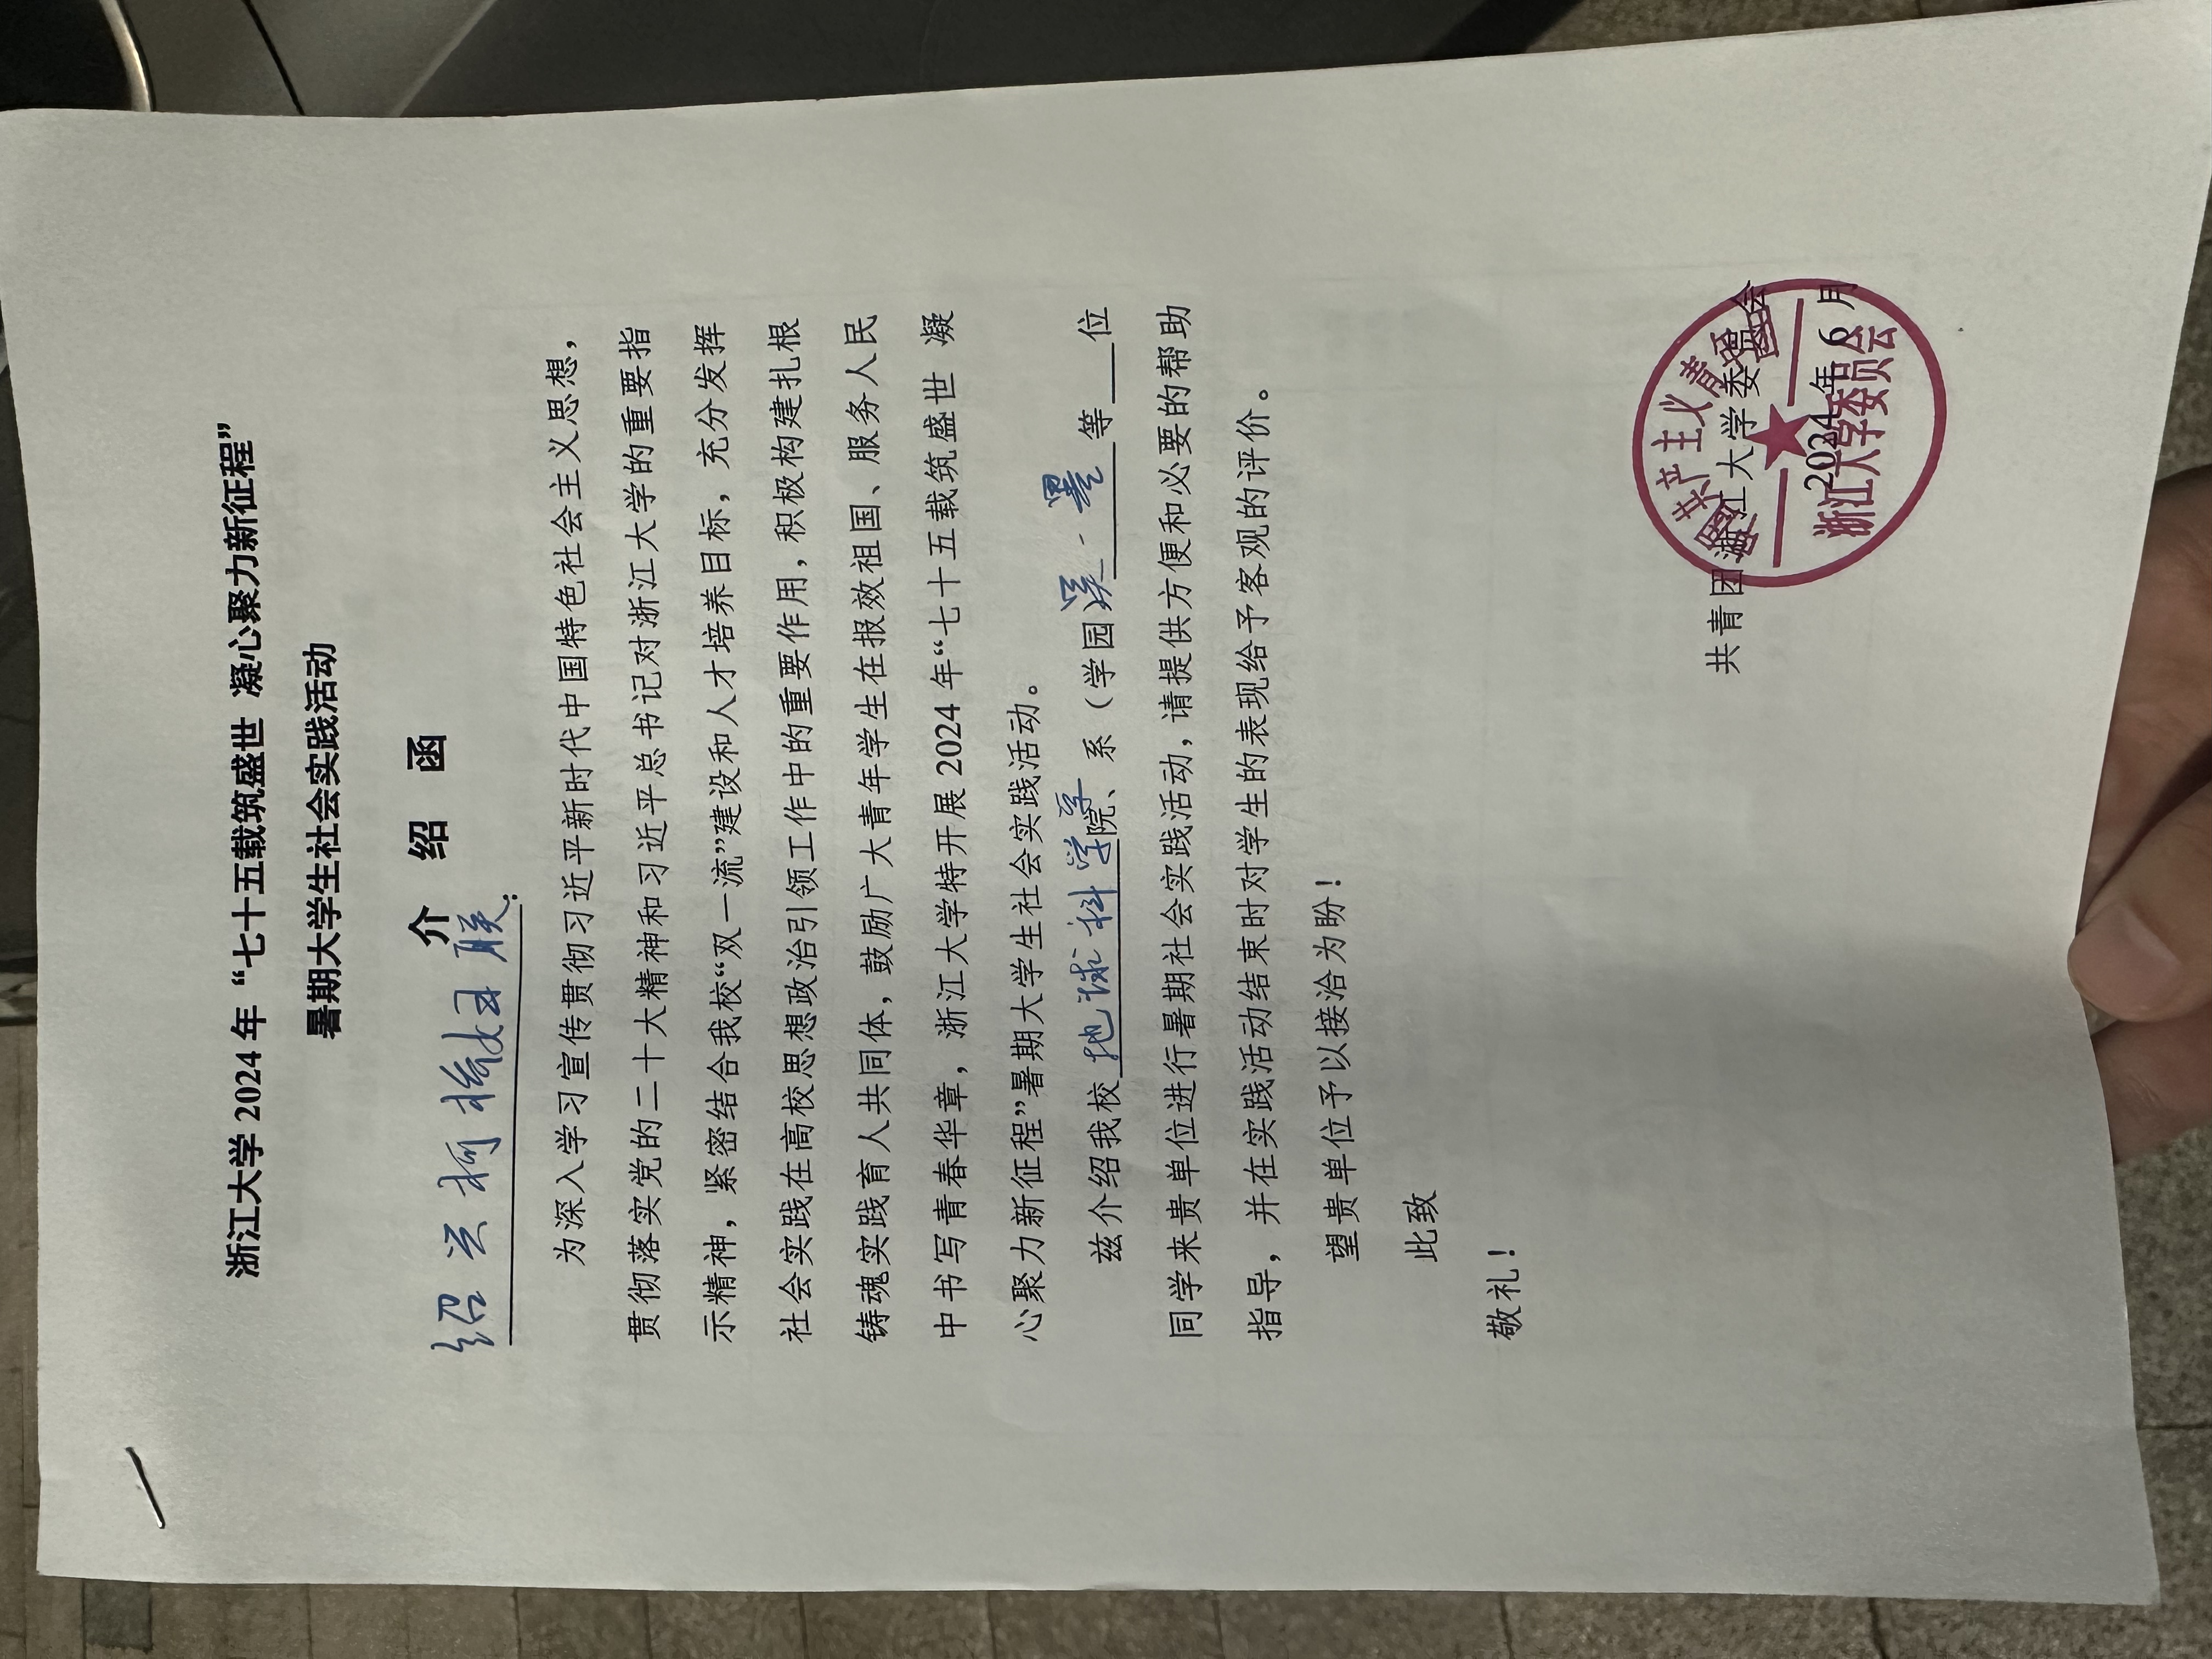 浙江大学 2024 年“七十五载筑盛世 凝心聚力新征程”
暑期大学生社会实践活动
介 绍 函
绍兴柯桥妇联:
为深入学习宣传贯彻习近平新时代中国特色社会主义思想，
贯彻落实党的二十大精神和习近平总书记对浙江大学的重要指
示精神，紧密结合我校“双一流”建设和人才培养目标，充分发挥
社会实践在高校思想政治引领工作中的重要作用，积极构建扎根
铸魂实践育人共同体，鼓励广大青年学生在报效祖国、服务人民
中书写青春华章，浙江大学特开展 2024 年“七十五载筑盛世 凝
心聚力新征程”暑期大学生社会实践活动。
兹介绍我校地球科学学院、系（学园）吴一墨等___位
同学来贵单位进行暑期社会实践活动，请提供方便和必要的帮助
指导，并在实践活动结束时对学生的表现给予客观的评价。
望贵单位予以接洽为盼！
此致
敬礼！
共青团浙江大学委员会
2024 年 6 月
中国共产主义青年团
浙江大学委员会